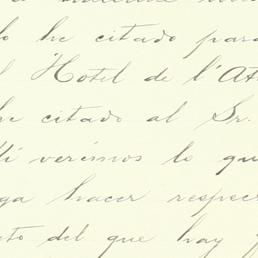 lo he citado para
l Hotel de l'At
he citado al Sr.
llí verémos lo qu
ga hacer respec
to del que hay